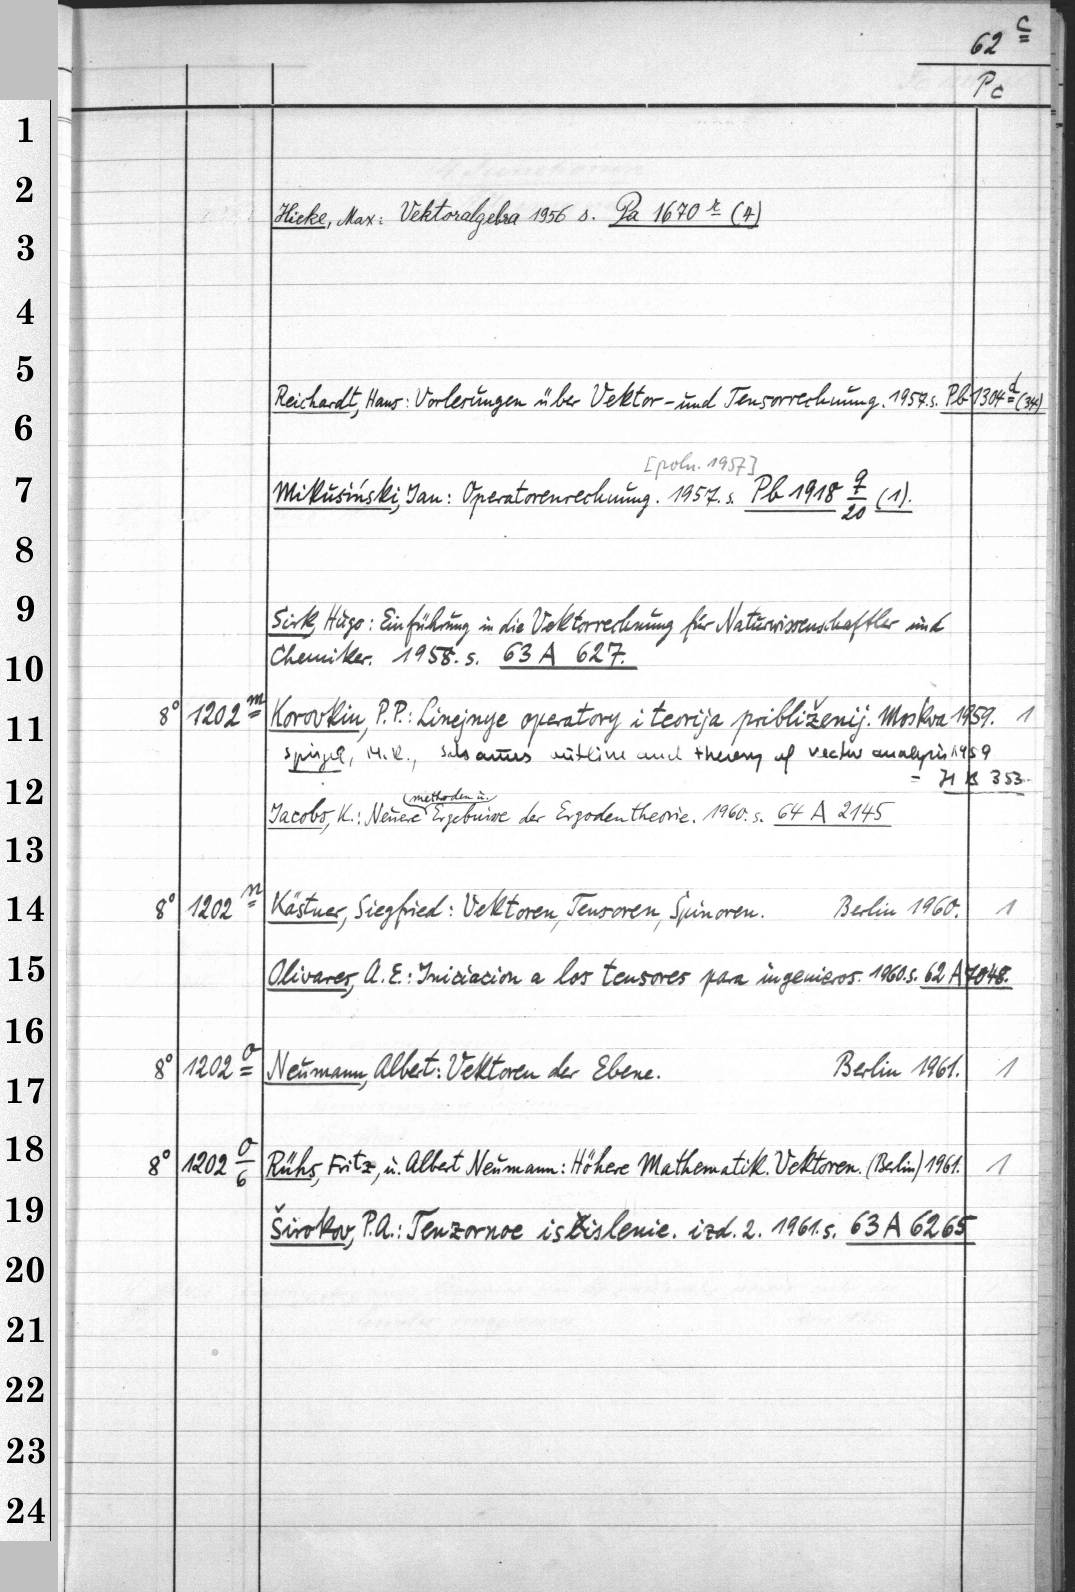 62 c
Pc
1
2
Hicke, Max: Vektoralgebra 1956 s. Pa 1670 r (4)
3
4
5
Reichardt, Hans: Vorlesungen über Vektor- und Tensorrechnung. 1957. s. Pb 1304 d (34)
6
[poln. 1957]
7
Mikusiński, Jan: Operatorenrechnung. 1957. s. Pb 1918 q/20 (1).
8
9
Sirk, Hugo: Einführung in die Vektorrechnung für Naturwissenschaftler und
10
Chemiker. 1958. s. 63 A 627.
8° 1202 m Korovkin, P.P.: Linejnye operatory i teorija približenij. Moskva 1959. 1
11
Spiegel, M.R., outline and theory of vector analysis 1959
12
= H B 353.
methoden u.
Jacobs, K.: Neuere Ergebnisse der Ergodentheorie. 1960. s. 64 A 2145
13
14
8° 1202 n Kästner, Siegfried: Vektoren, Tensoren, Spinoren. Berlin 1960. 1
15
Olivares, A.E.: Iniciacion a los tensores para ingenieros. 1960. s. 62 A 7048.
16
8° 1202 o Neumann, Albert: Vektoren der Ebene. Berlin 1961. 1
17
18
8° 1202 o/6 Rühs, Fritz, u. Albert Neumann: Höhere Mathematik. Vektoren. (Berlin) 1961. 1
19
Širokov, P.A.: Tenzornoe isčislenie. izd. 2. 1961. s. 63 A 6265
20
21
22
23
24